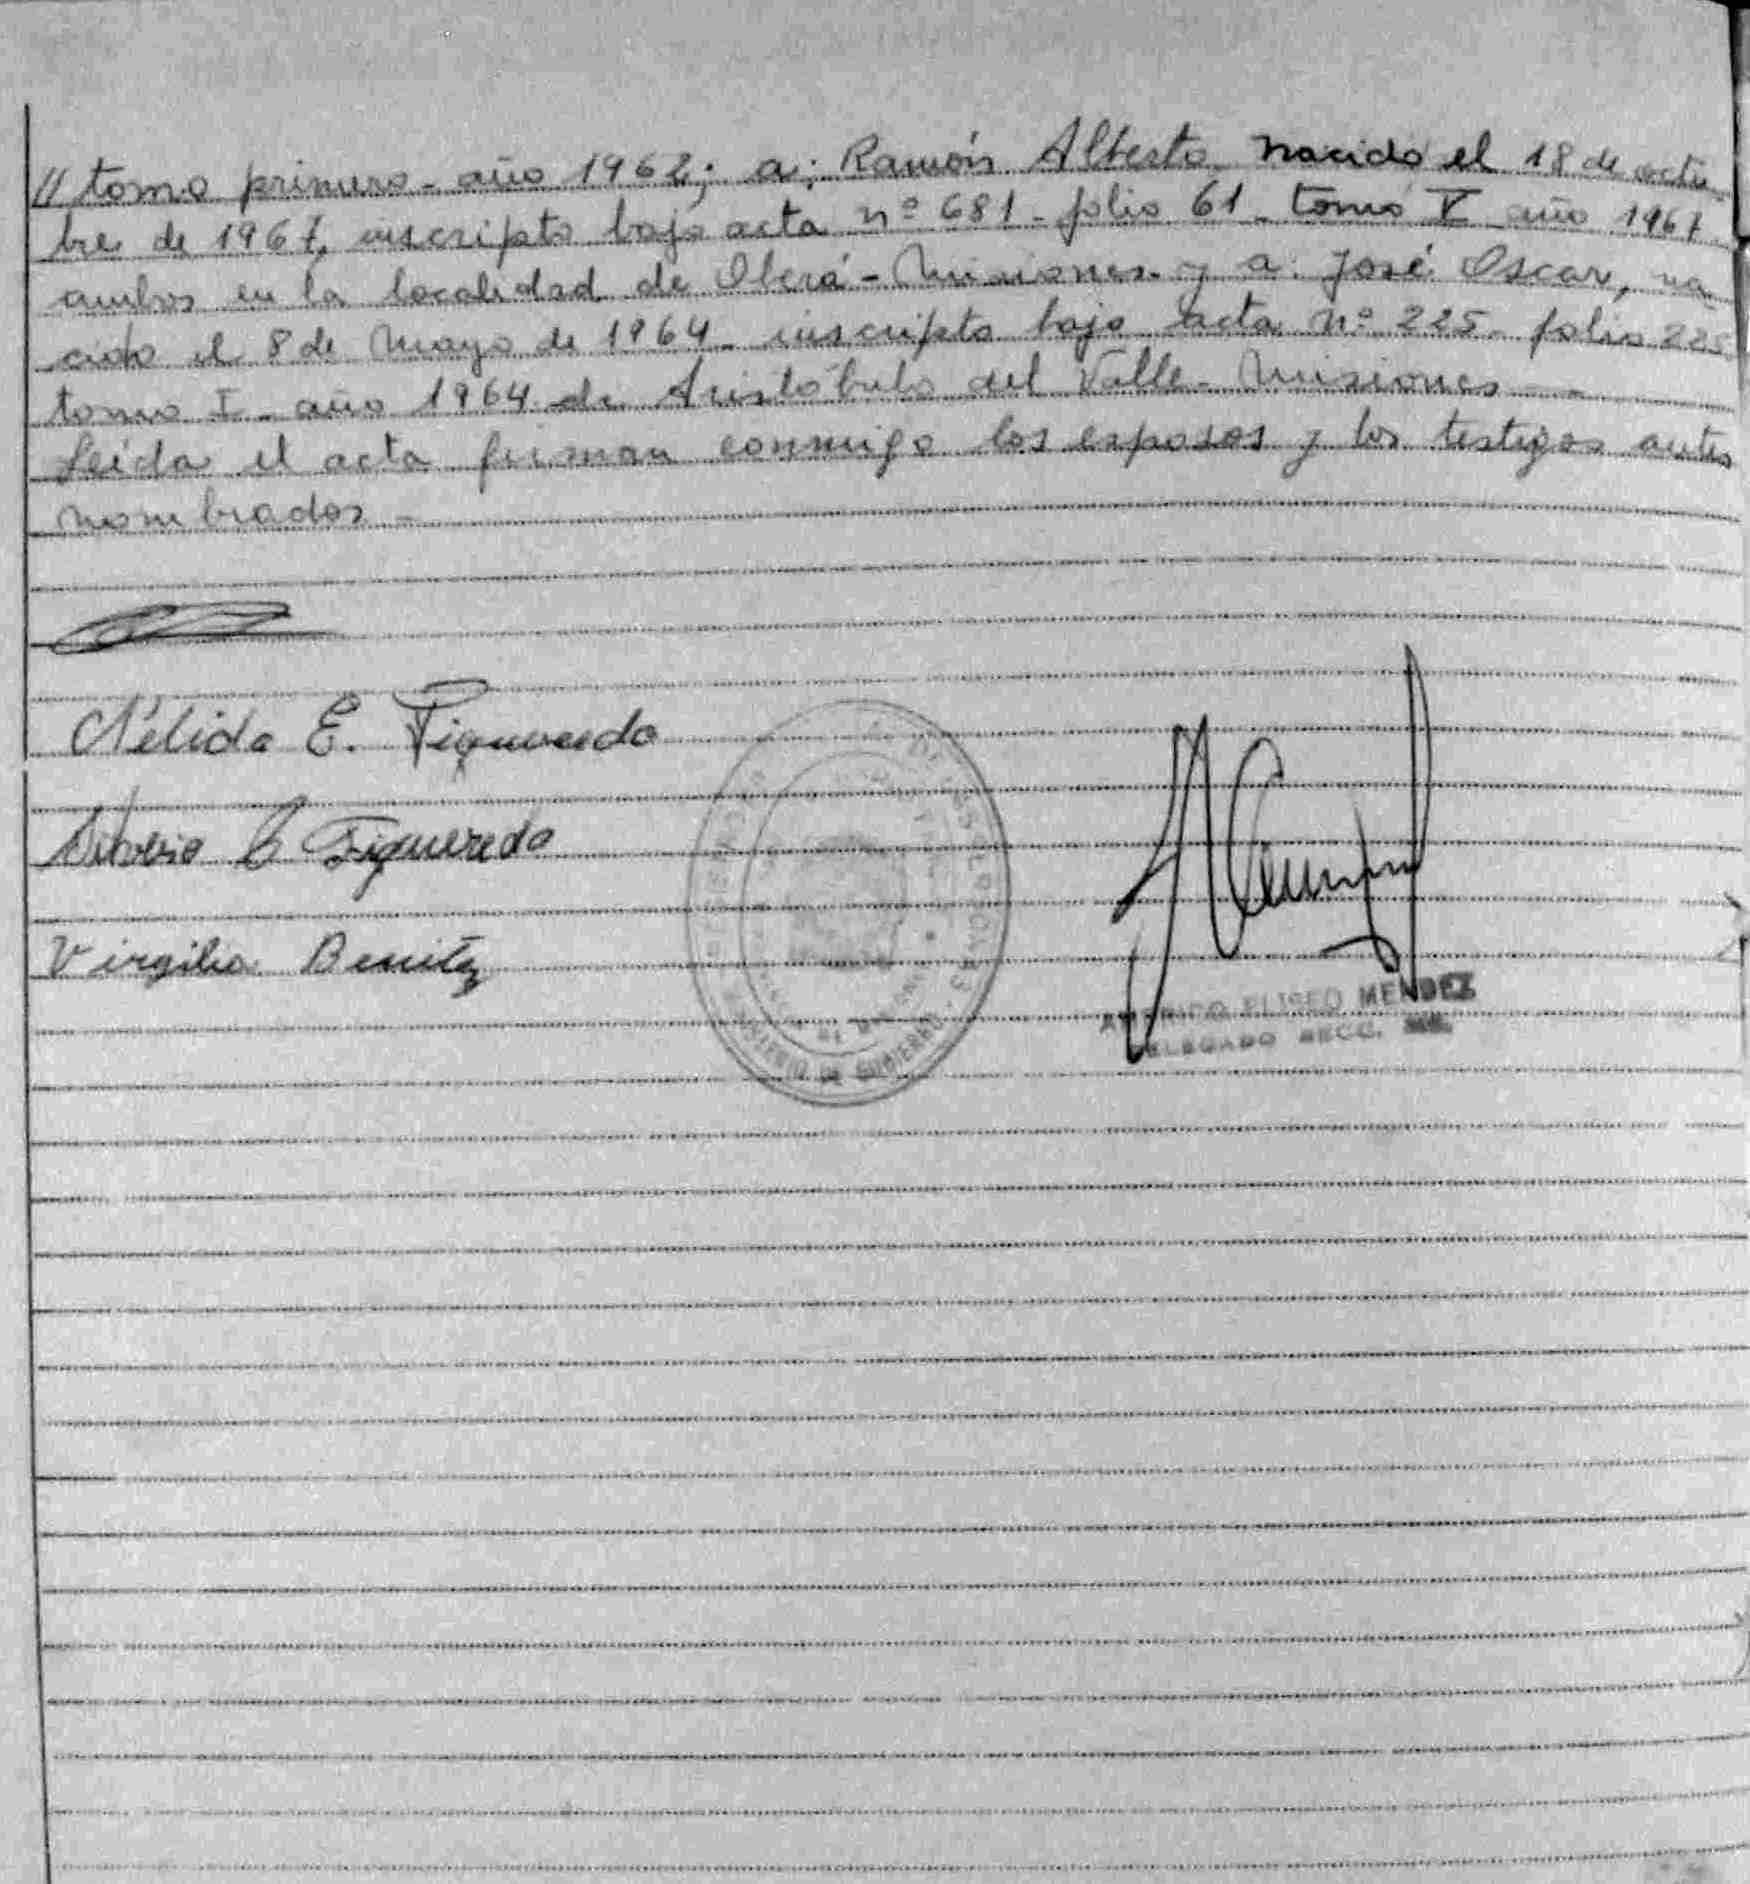 // tomo primero - año 1962; a: Ramón Alberto nacido el 18 de octu
bre de 1967, inscripto bajo acta nº 681 - folio 61 - tomo V año 1967
ambos en la localidad de Oberá - Misiones y a: José Oscar, na
cido el 8 de Mayo de 1964 - inscripto bajo acta nº 225 - folio 225
tomo I - año 1964 de Aristóbulo del Valle - Misiones -
Leída el acta firman conmigo los esposos y los testigos antes
nombrados -
Nélida E. Figueredo
Figueredo
Virgilio Benitez
MINISTERIO DE GOBIERNO
ELISEO MENDEZ
DELEGADO SECC.